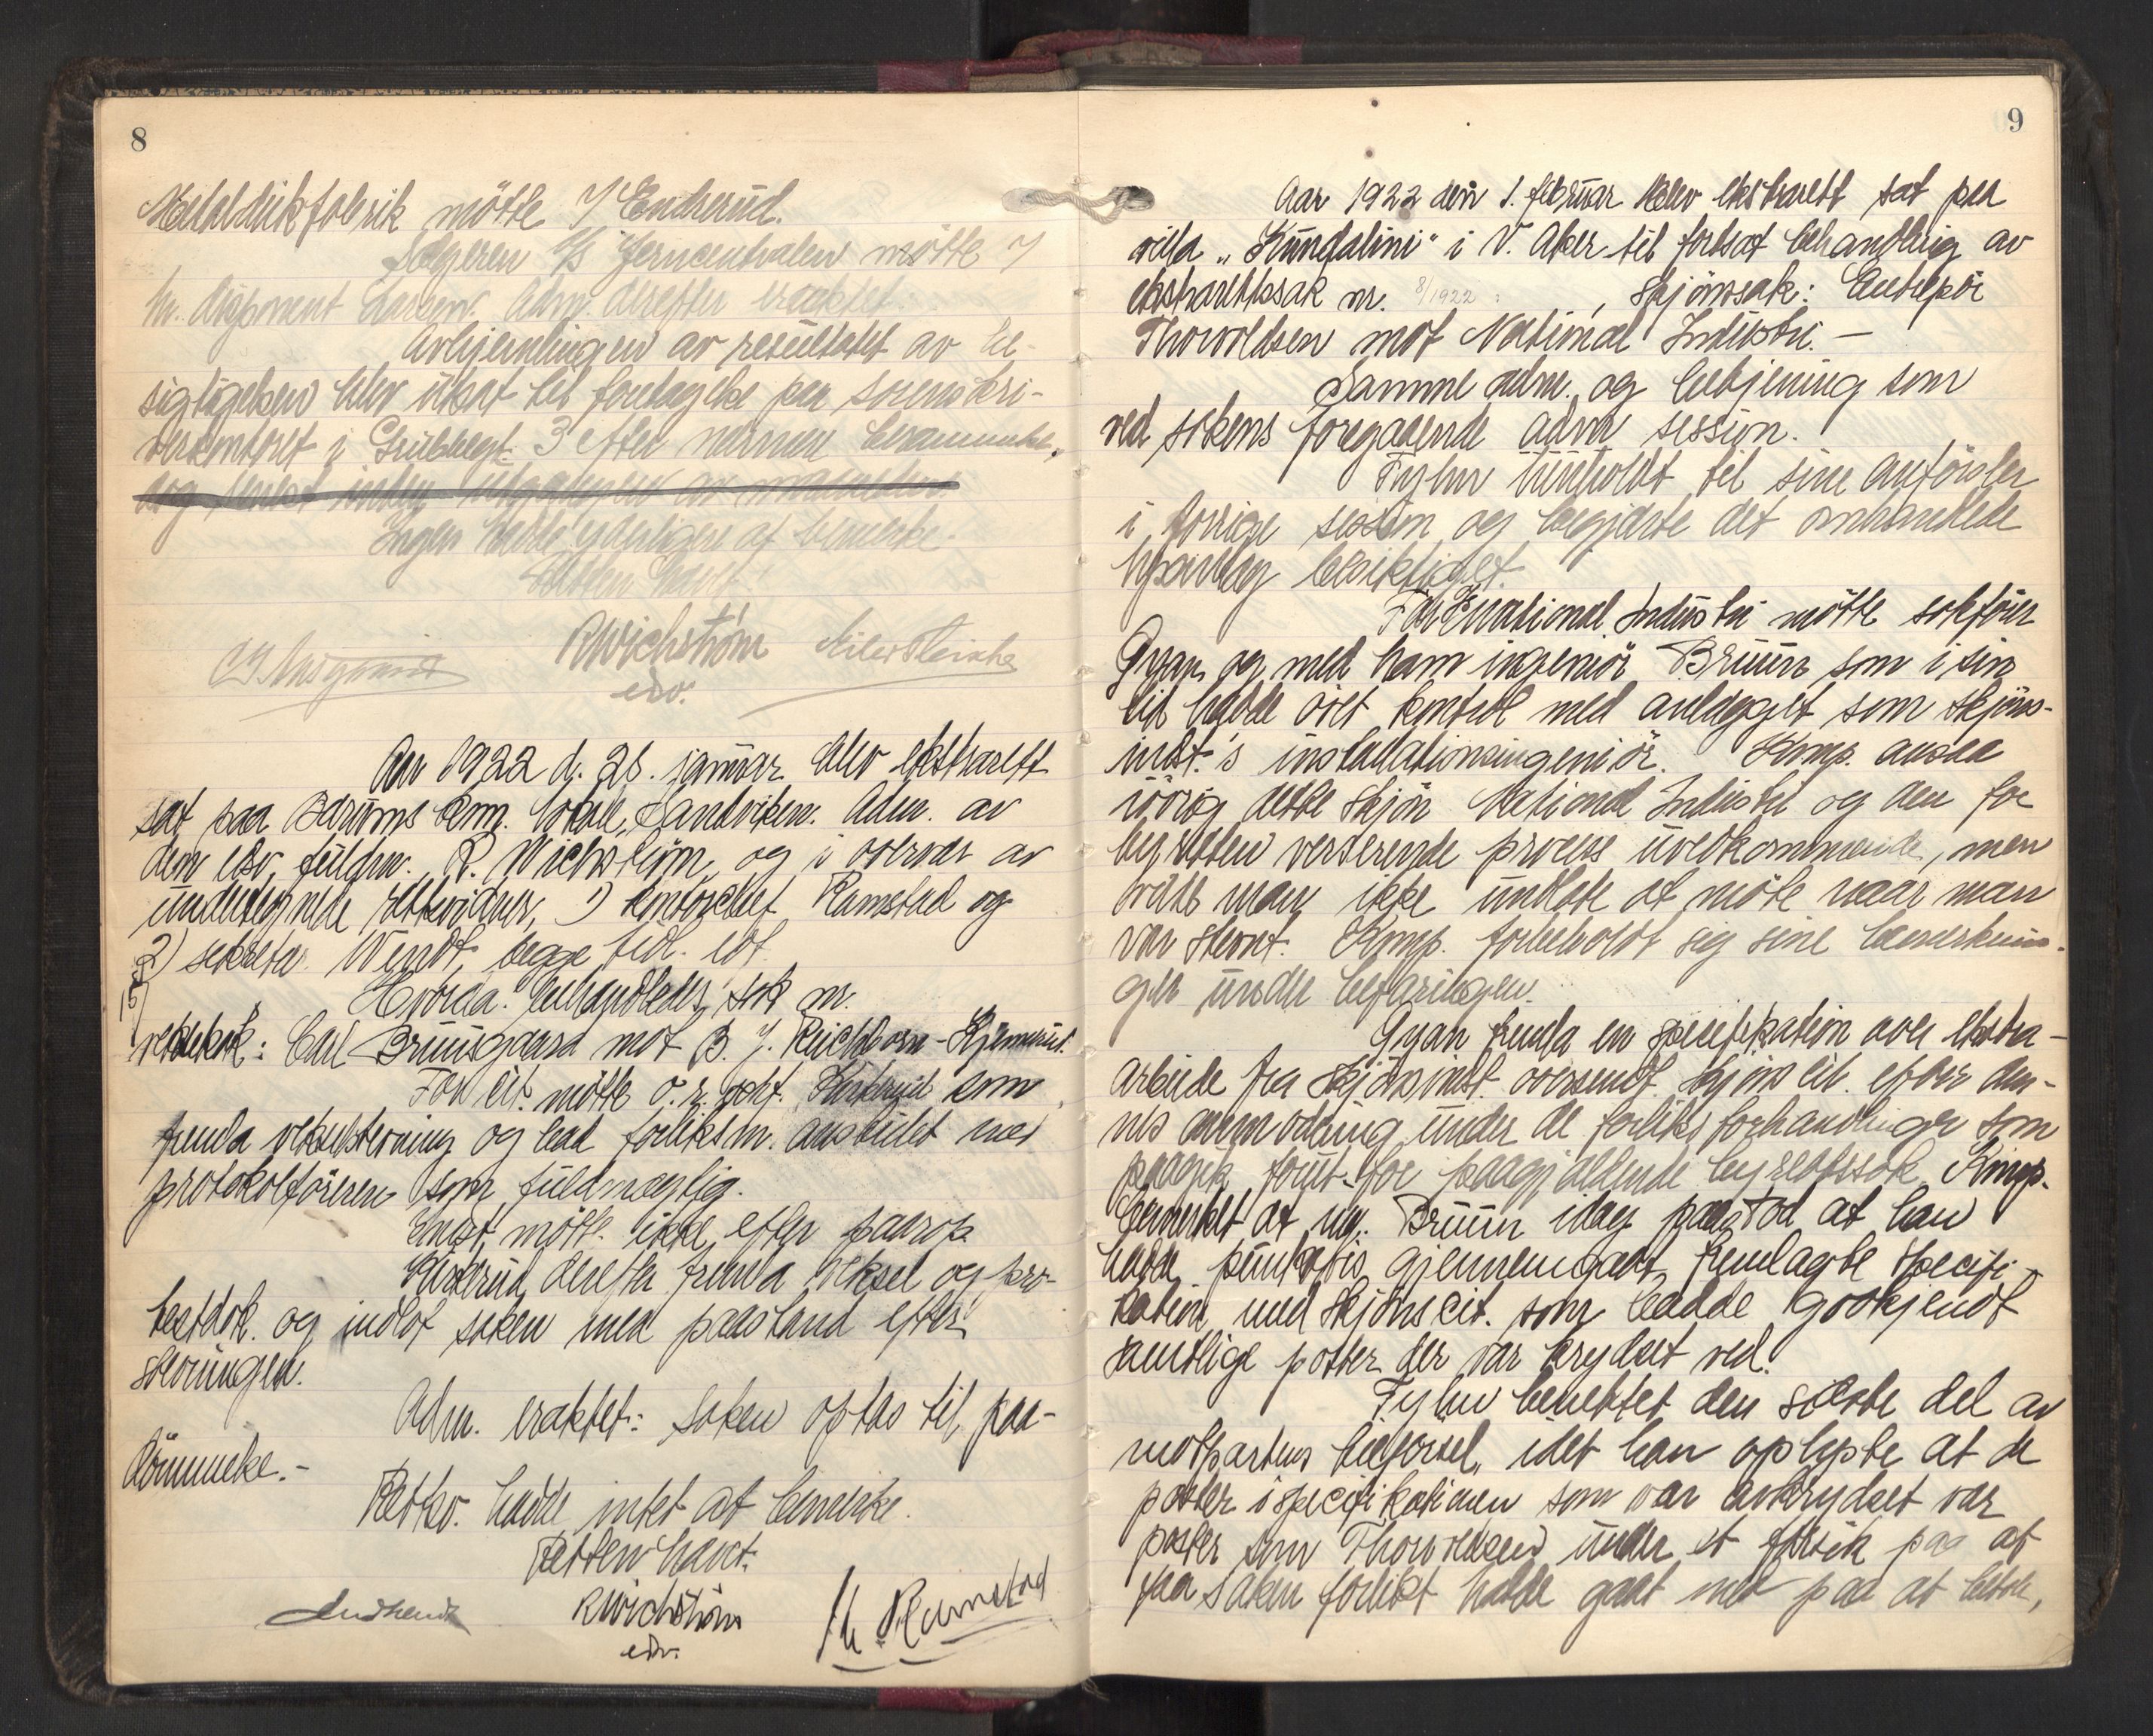 8
Metaldukfabrik mötte Endrerud.
Selgeren A/S Jerncentralen mötte
hr. disponent Larsen. Adm. derefter eraktet:
Avhjemlingen av resultatet av be-
sigtigelsen blev utsat til foretagelse paa sorenskri-
verkontoret i Grubbegt. 3 efter nærmere berammelse,
Ingen hadde yderligere at bemerke.
Retten hævet.
RWichstrøm
edv.
Aar 1922 d. 28. januar blev ekstrarett
sat paa Bærums kom. lokale, Sandviken. Adm. av
den edv. fuldm. R. Wichstrøm og i overvær av
undertegnede rettsvidner, 1) kontorchef Ramstad og
2) sekretær Wendt, begge tidl. edf.
Hvorda: behandledes sak nr.
15/22
vekselsak: Carl Bruusgaard mot B. J. Reichborn-Kjennerud.
For cit. mötte o.r. sakf. som
fremla vekselstevning og bad forliksm. anstillet med
protokolföreren som fuldmægtig.
Indst. mötte ikke efter paarop.
derefter fremla veksel og pro-
testdok. og indlot saken med paastand efter
stevningen.
Adm. eraktet: Saken optas til paa-
dömmelse.-
Rettsv. hadde intet at bemerke.
Retten hævet.
RWichström
edv.
Ramstad
9
Aar 1922 den 1. februar blev ekstrarett sat paa
villa „Kundalini" i V. Aker til fortsat behandling av
ekstrarettssak nr. 8/1922: , Skjönssak: Entrepr
Thorvaldsen mot National Industri. -
Samme adm. og betjening som
ved sakens foregaaende adm session.
Fyhn henholdt til sine anförsler
i forrige session og begjærte det omhandlede
besiktiget.
For National Industri mötte sakförer
Gran og med ham ingeniör Bruun som i sin
tid hadde övet kontrol med anlægget som skjöns-
indst.'s installationsingeniör. Komp. ansaa
iövrig dette skjön National Industri og den for
byretten verserende proces uvedkommende, men
vilde man ikke undlate at möte naar man
var stevnt. Komp. forbeholdt sig sine bemerknin-
ger under befaringen.
Gran fremla en specifikation over ekstra-
arbeide fra Skjönsindst. oversendt Skjönscit. efter den-
nes anmodning under de forliksforhandlinger som
paagik forut for paagjældende byrettssak. Komp.
bemerket at ing. Bruun idag paastod at han
hadde punktvis gjennemgaat fremlagte specifi-
kation med skjönscit. som hadde godkjendt
samtlige poster der var krydset ved.
Fyhn benektet den sidste del av
motpartens tilförsel, idet han oplyste at de
poster i specifikationen som var avkrydset var
poster som Thorvaldsen under et forsök paa at
faa saken forlikt hadde gaat med paa at betale,